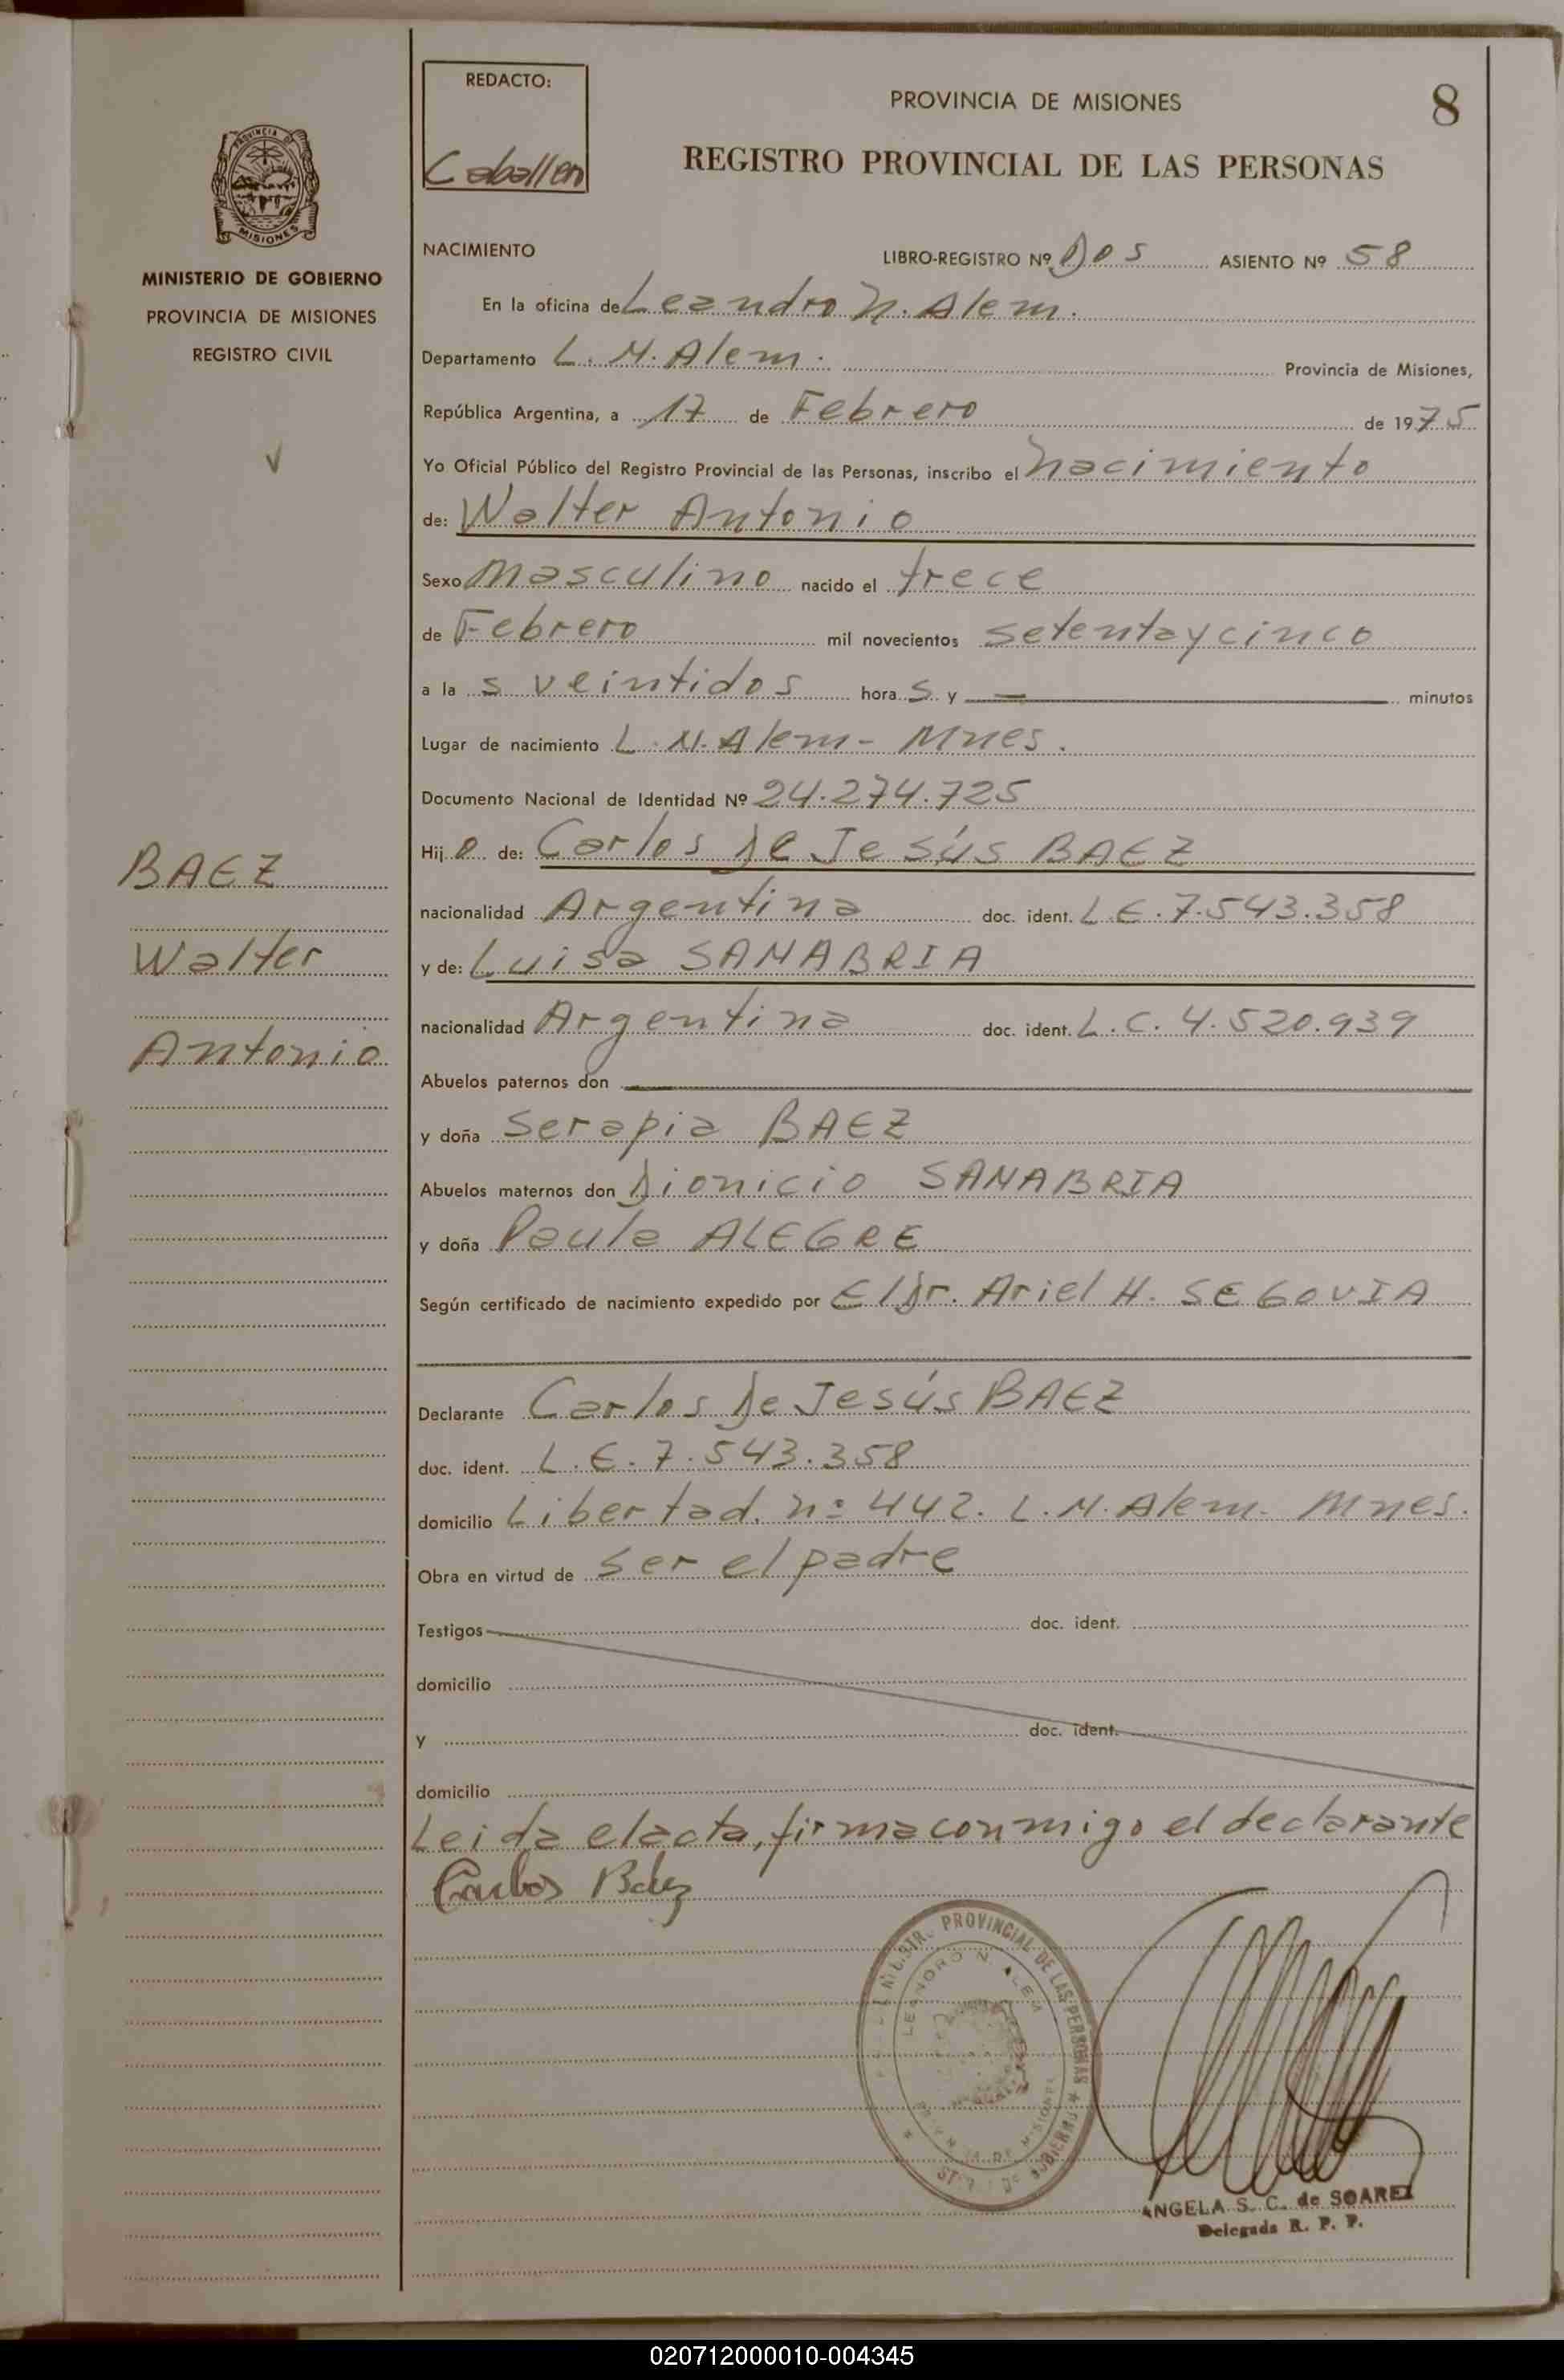 REDACTO:
Caballero
PROVINCIA DE MISIONES
8
REGISTRO PROVINCIAL DE LAS PERSONAS
PROVINCIA DE
MISIONES
MINISTERIO DE GOBIERNO
PROVINCIA DE MISIONES
REGISTRO CIVIL
NACIMIENTO
LIBRO-REGISTRO Nº Dos ASIENTO Nº 58
En la oficina de Leandro N. Alem.
Departamento L. N. Alem. Provincia de Misiones,
República Argentina, a 17 de Febrero de 1975
Yo Oficial Público del Registro Provincial de las Personas, inscribo el nacimiento
de: Walter Antonio
Sexo Masculino nacido el trece
de Febrero mil novecientos setentaycinco
a la s veintidos hora s y — minutos
Lugar de nacimiento L. N. Alem - Mnes.
Documento Nacional de Identidad Nº 24.274.725
Hij o de: Carlos De Jesús BAEZ
nacionalidad Argentina doc. ident. L.E. 7.543.358
y de: Luisa SANABRIA
nacionalidad Argentina doc. ident. L.C. 4.520.939
Abuelos paternos don
y doña Serapia BAEZ
Abuelos maternos don Dionicio SANABRIA
y doña Paula ALEGRE
Según certificado de nacimiento expedido por El Dr. Ariel H. SEGOVIA
Declarante Carlos De Jesús BAEZ
doc. ident. L.E. 7.543.358
domicilio Libertad. nº 442. L. N. Alem - Mnes.
Obra en virtud de ser el padre
Testigos doc. ident.
domicilio
y doc. ident.
domicilio
Leida el acta, firma conmigo el declarante
Carlos Baez
BAEZ
Walter
Antonio
PROVINCIAL DE LAS PERSONAS
LEANDRO N. ALEM
PROVINCIA DE MISIONES
ANGELA S. C. de SOAREZ
Delegada R. P. P.
020712000010-004345